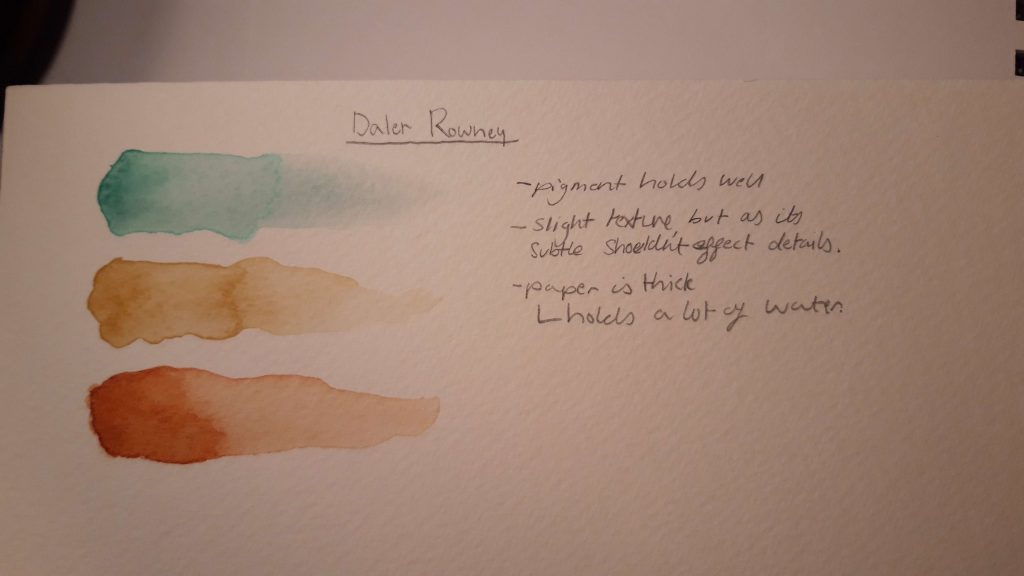 Daler Rowney
- pigment holds well
- slight texture, but as its
subtle shouldn't effect details.
- paper is thick
L holds a lot of water.